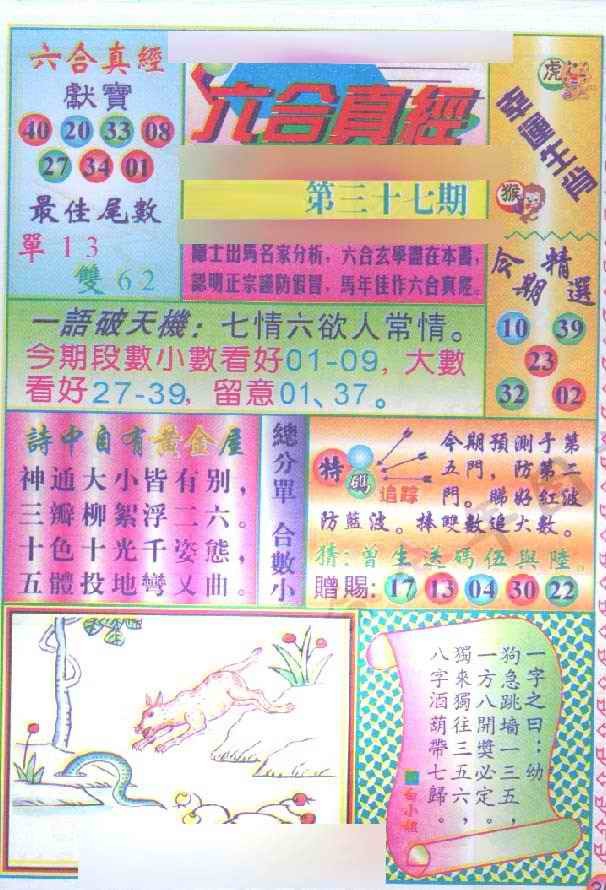 六合真經
獻寶
40 20 33 08
27 34 01
最佳尾數
單 1 3
雙 6 2
六合真經
第三十七期
隱士出馬名家分析，六合玄學盡在本書，
認明正宗謹防假冒，馬年佳作六合真經。
虎
幸運生肖
猴
今期精選
10 39
23
32 02
一語破天機：七情六欲人常情。
今期段數小數看好01-09，大數
看好27-39，留意01、37。
詩中自有黃金屋
神通大小皆有別，
三瓣柳絮浮二六。
十色十光千姿態，
五體投地彎又曲。
總分單 合數小
特碼
追踪
今期預測于第
五門，防第二
門。睇好紅波
防藍波。捧雙數追大數。
猜：曾生送碼伍與陸。
贈賜：17 13 04 30 22
一字之曰：幼
狗急跳墻一三五，
一方八開獎必定。
獨來獨往三五六，
八字酒葫帶七歸。
白小姐